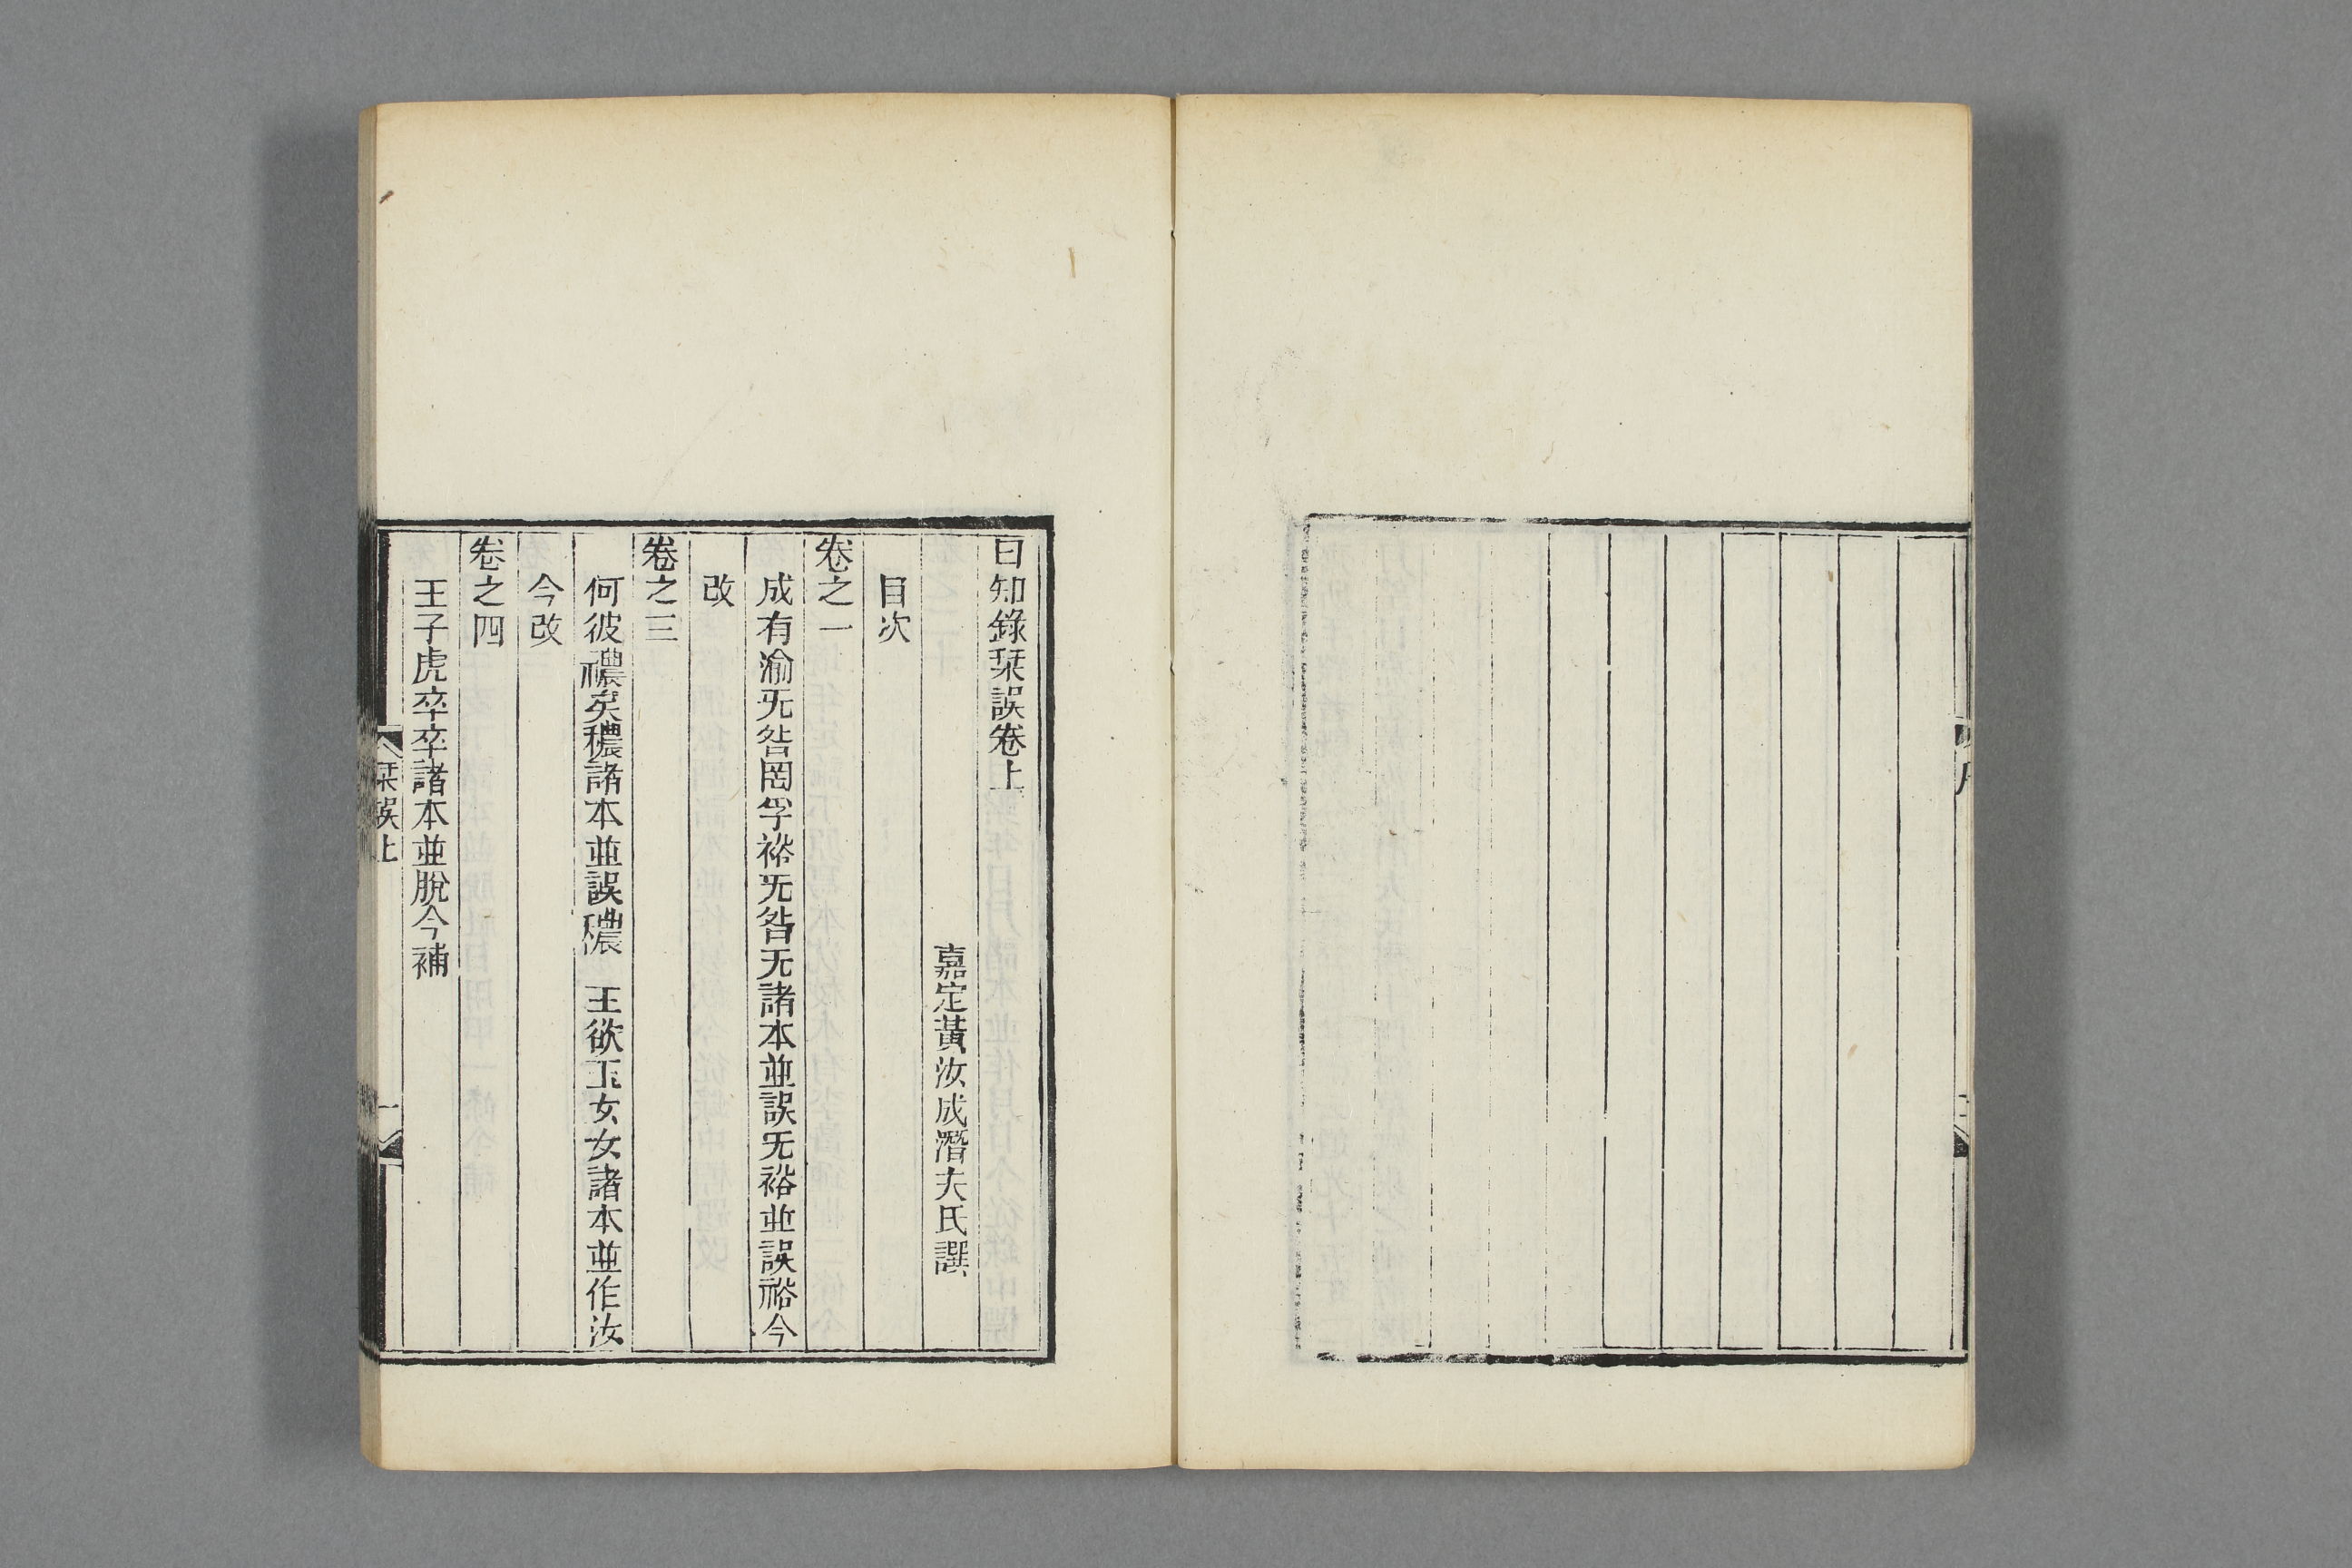 日知錄栞誤卷上
嘉定黃汝成潛夫氏譔
目次
卷之一
成有渝旡咎罔孚裕旡咎无諸本並誤旡裕並誤裕今
改
卷之三
何彼襛矣穠諸本並誤穠　王欲玉女女諸本並作汝
今改
卷之四
王子虎卒卒諸本並脫今補
栞誤上
一